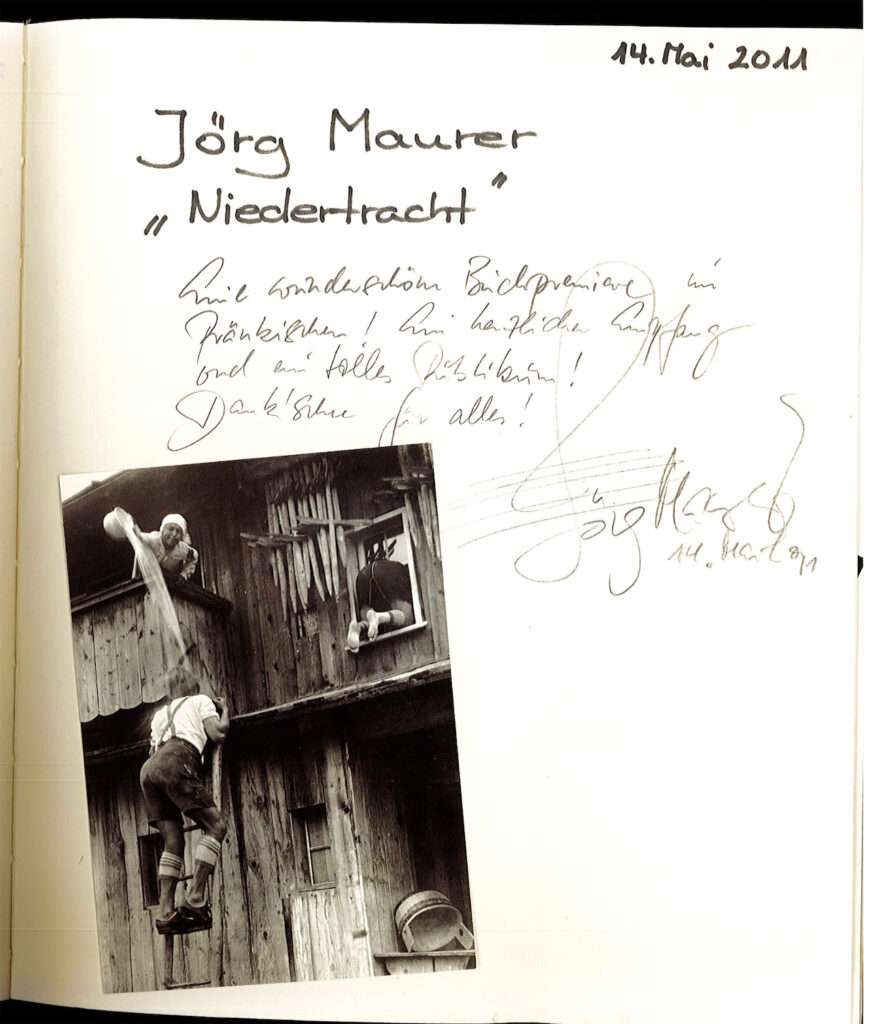 14. Mai 2011
Jörg Maurer
„Niedertracht"
Eine wunderschöne Buchpremiere im
Fränkischen! Ein herzlicher Empfang
und ein tolles Publikum!
Dankschön für alles!
Jörg Maurer
14. Mai 2011